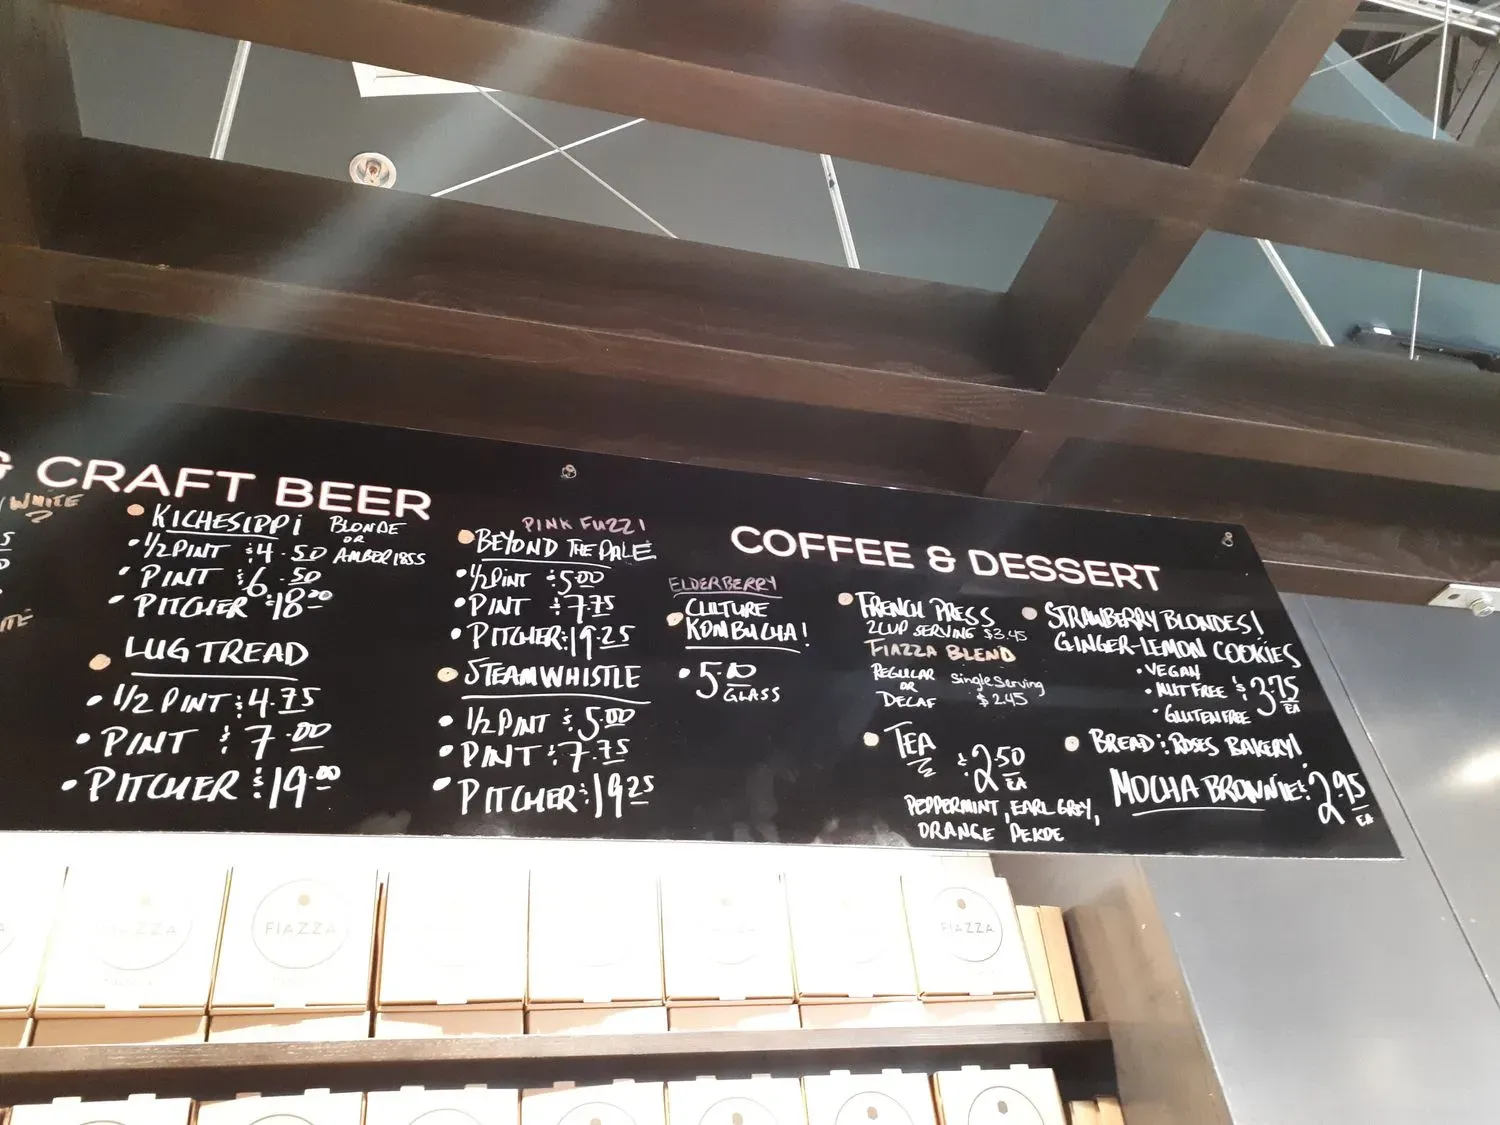 CRAFT BEER
WHITE
KICHESIPPI BLONDE
OR
AMBER 1855
• 1/2 PINT $4.50
• PINT $6.50
• PITCHER $18.00
LUG TREAD
• 1/2 PINT $4.75
• PINT $7.00
• PITCHER $19.00
PINK FUZZ!
BEYOND THE PALE
• 1/2 PINT $5.00
• PINT $7.75
• PITCHER $19.25
STEAMWHISTLE
• 1/2 PINT $5.00
• PINT $7.75
• PITCHER $19.25
ELDERBERRY
CULTURE
KOMBUCHA!
• 5.00
GLASS
COFFEE & DESSERT
FRENCH PRESS
2 CUP SERVING $3.45
FIAZZA BLEND
REGULAR
OR
DECAF
Single Serving
$2.45
TEA
$2.50
EA
PEPPERMINT, EARL GREY,
ORANGE PEKOE
STRAWBERRY BLONDES!
GINGER-LEMON COOKIES
• VEGAN
• NUT FREE $3.75
EA
• GLUTEN FREE
BREAD: ROSES BAKERY!
MOCHA BROWNIE $2.95
EA
FIAZZA
FIAZZA
FIAZZA